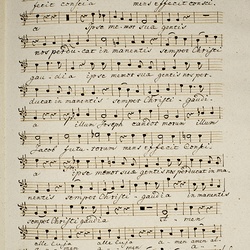 fecit conscia mens effecit consci-
a ipse memor sua gentis
nos perducat in manentis semper Christi
gaudia ipse memor sua gentis nos per-
ducat in manentis semper Christi gaudi-
a illum Joseph candor morum illum
Jacob futurorum mens effecit consci-
a ipse memor sua gentis nos perducat in ma-
nentis semper Christi gaudia in manentis
semper Christi gaudia a men
alle luja alle luja a men amen al-